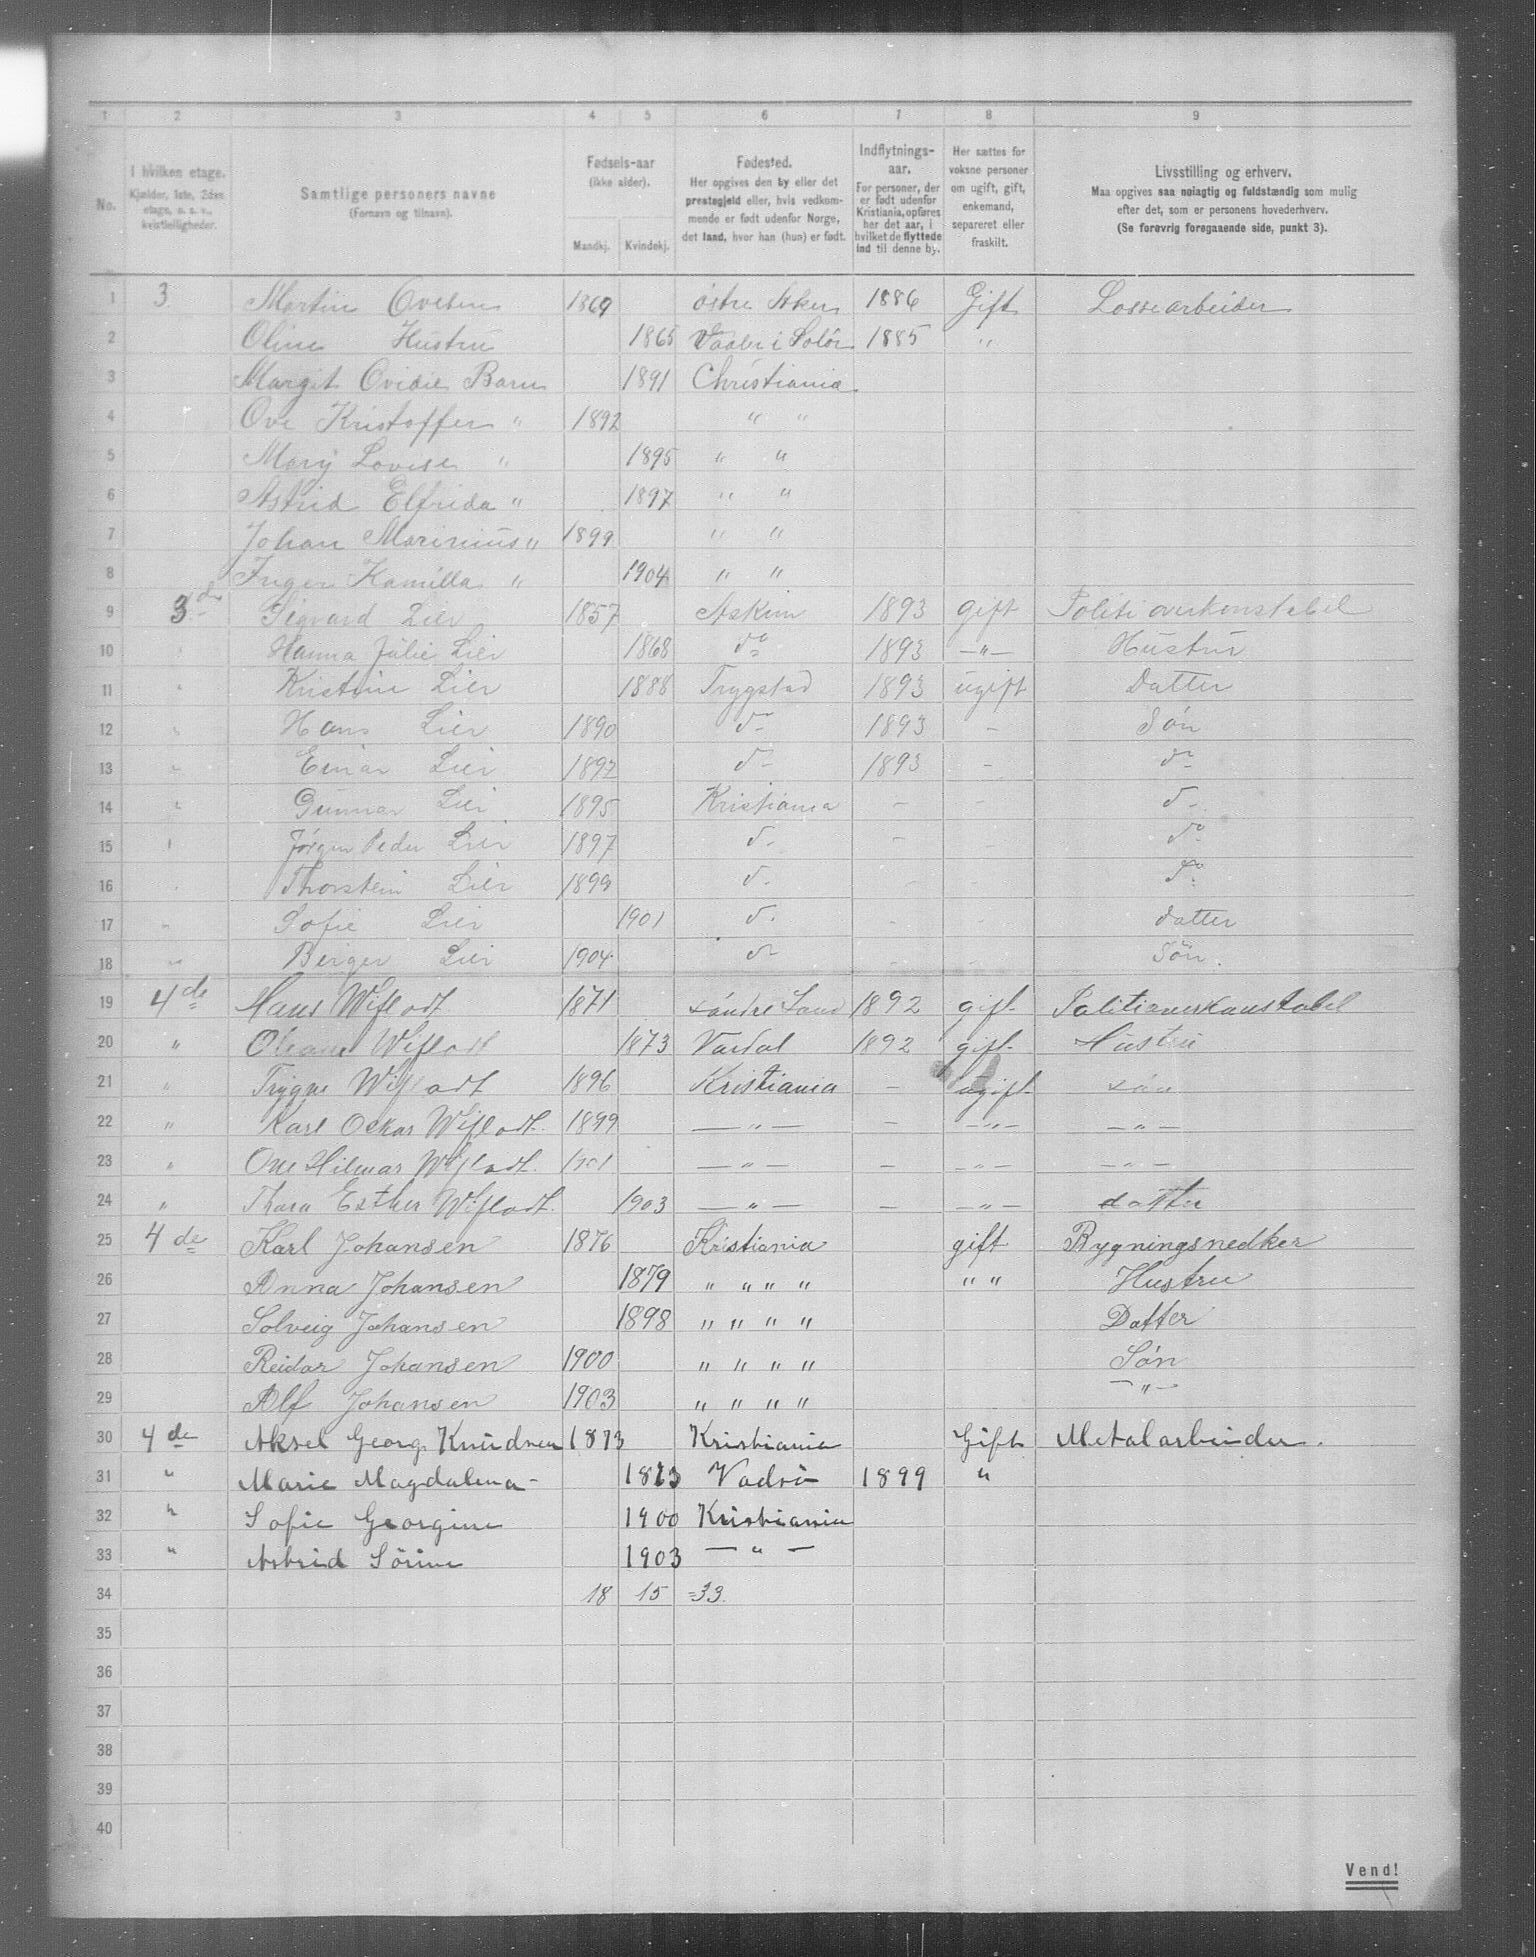 1 2 3 4 5 6 7 8 9
No.
I hvilken etage.
Kjælder, 1ste, 2den etage, o. s. v., kvistleiligheder.
Samtlige personers navne
(Fornavn og tilnavn).
Fødsels-aar
(ikke alder).
Mandkj. Kvindekj.
Fødested.
Her opgives den by eller det
prestegjeld eller, hvis vedkom-
mende er født udenfor Norge,
det land, hvor han (hun) er født.
Indflytnings-
aar.
For personer, der
er født udenfor
Kristiania, opføres
her det aar, i
hvilket de flyttede
ind til denne by.
Her sættes for
voksne personer
om ugift, gift,
enkemand,
separeret eller
fraskilt.
Livsstilling og erhverv.
Maa opgives saa nøiagtig og fuldstændig som mulig
efter det, som er personens hovederhverv.
(Se forøvrig foregaaende side, punkt 3).
1 3 Martin Ovesen 1869 østre Aker 1886 Gift Lossearbeider
2 Oline Hustru 1865 Vaaler i Solør 1885 "
3 Margit Ovidie Barn 1891 Christiania
4 Ove Kristoffer " 1892 " "
5 Mary Lovise " 1895 " "
6 Astrid Elfrida " 1897 " "
7 Johan Marinius " 1899 " "
8 Inger Kamilla " 1904 " "
9 3de Sigvard Lier 1857 Askim 1893 gift Politioverkonstabel
10 " Hanna Julie Lier 1868 do 1893 -"- Hustru
11 " Kristine Lier 1888 Trygstad 1893 ugift Datter
12 " Hans Lier 1890 do 1893 - Søn
13 " Einar Lier 1892 do 1893 - do
14 " Gunnar Lier 1895 Kristiania - - do
15 " Jørgen Peder Lier 1897 do - - do
16 " Thorstein Lier 1899 do - - do
17 " Sofie Lier 1901 do - - datter
18 " Birger Lier 1904 do - - Søn.
19 4de Hans Wiflodt 1871 søndre Land 1892 gift Politioverkonstabel
20 " Oleane Wiflodt 1873 Vardal 1892 gift Hustru
21 " Trygve Wiflodt 1896 Kristiania - ugift søn
22 " Karl Oskar Wiflodt. 1899 -"- - -"- -"-
23 " Ove Hilmar Wiflodt. 1901 -"- - -"- -"-
24 " Thora Esther Wiflodt. 1903 -"- - -"- datter
25 4de Karl Johansen 1876 Kristiania gift Bygningsnedker
26 Anna Johansen 1879 " " " " " " Hustru
27 Solveig Johansen 1898 " " " " Datter
28 Reidar Johansen 1900 " " " " Søn
29 Alf Johansen 1903 " " " " -"-
30 4de Aksel Georg Knudsen 1873 Kristiania Gift Metalarbeider.
31 " Marie Magdalena - 1873 Vadsö 1899 "
32 " Sofie Georgine 1900 Kristiania
33 " Astrid Sörine 1903 -"-
34 18 15 =33.
35
36
37
38
39
40
Vend!